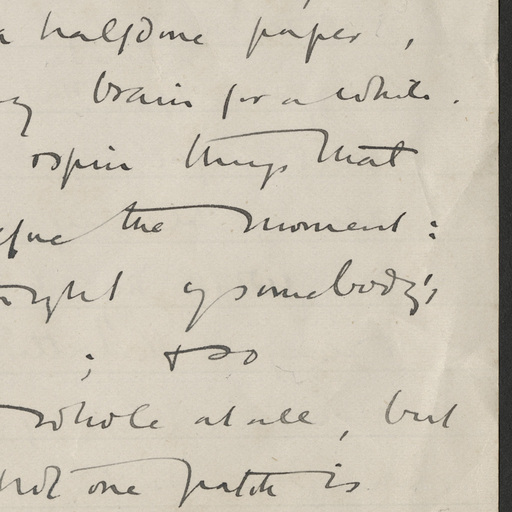 a halfdone paper,
brain for a while.
& spin things that
the moment:
somebody's
; & so
whole at all, but
not one patch is